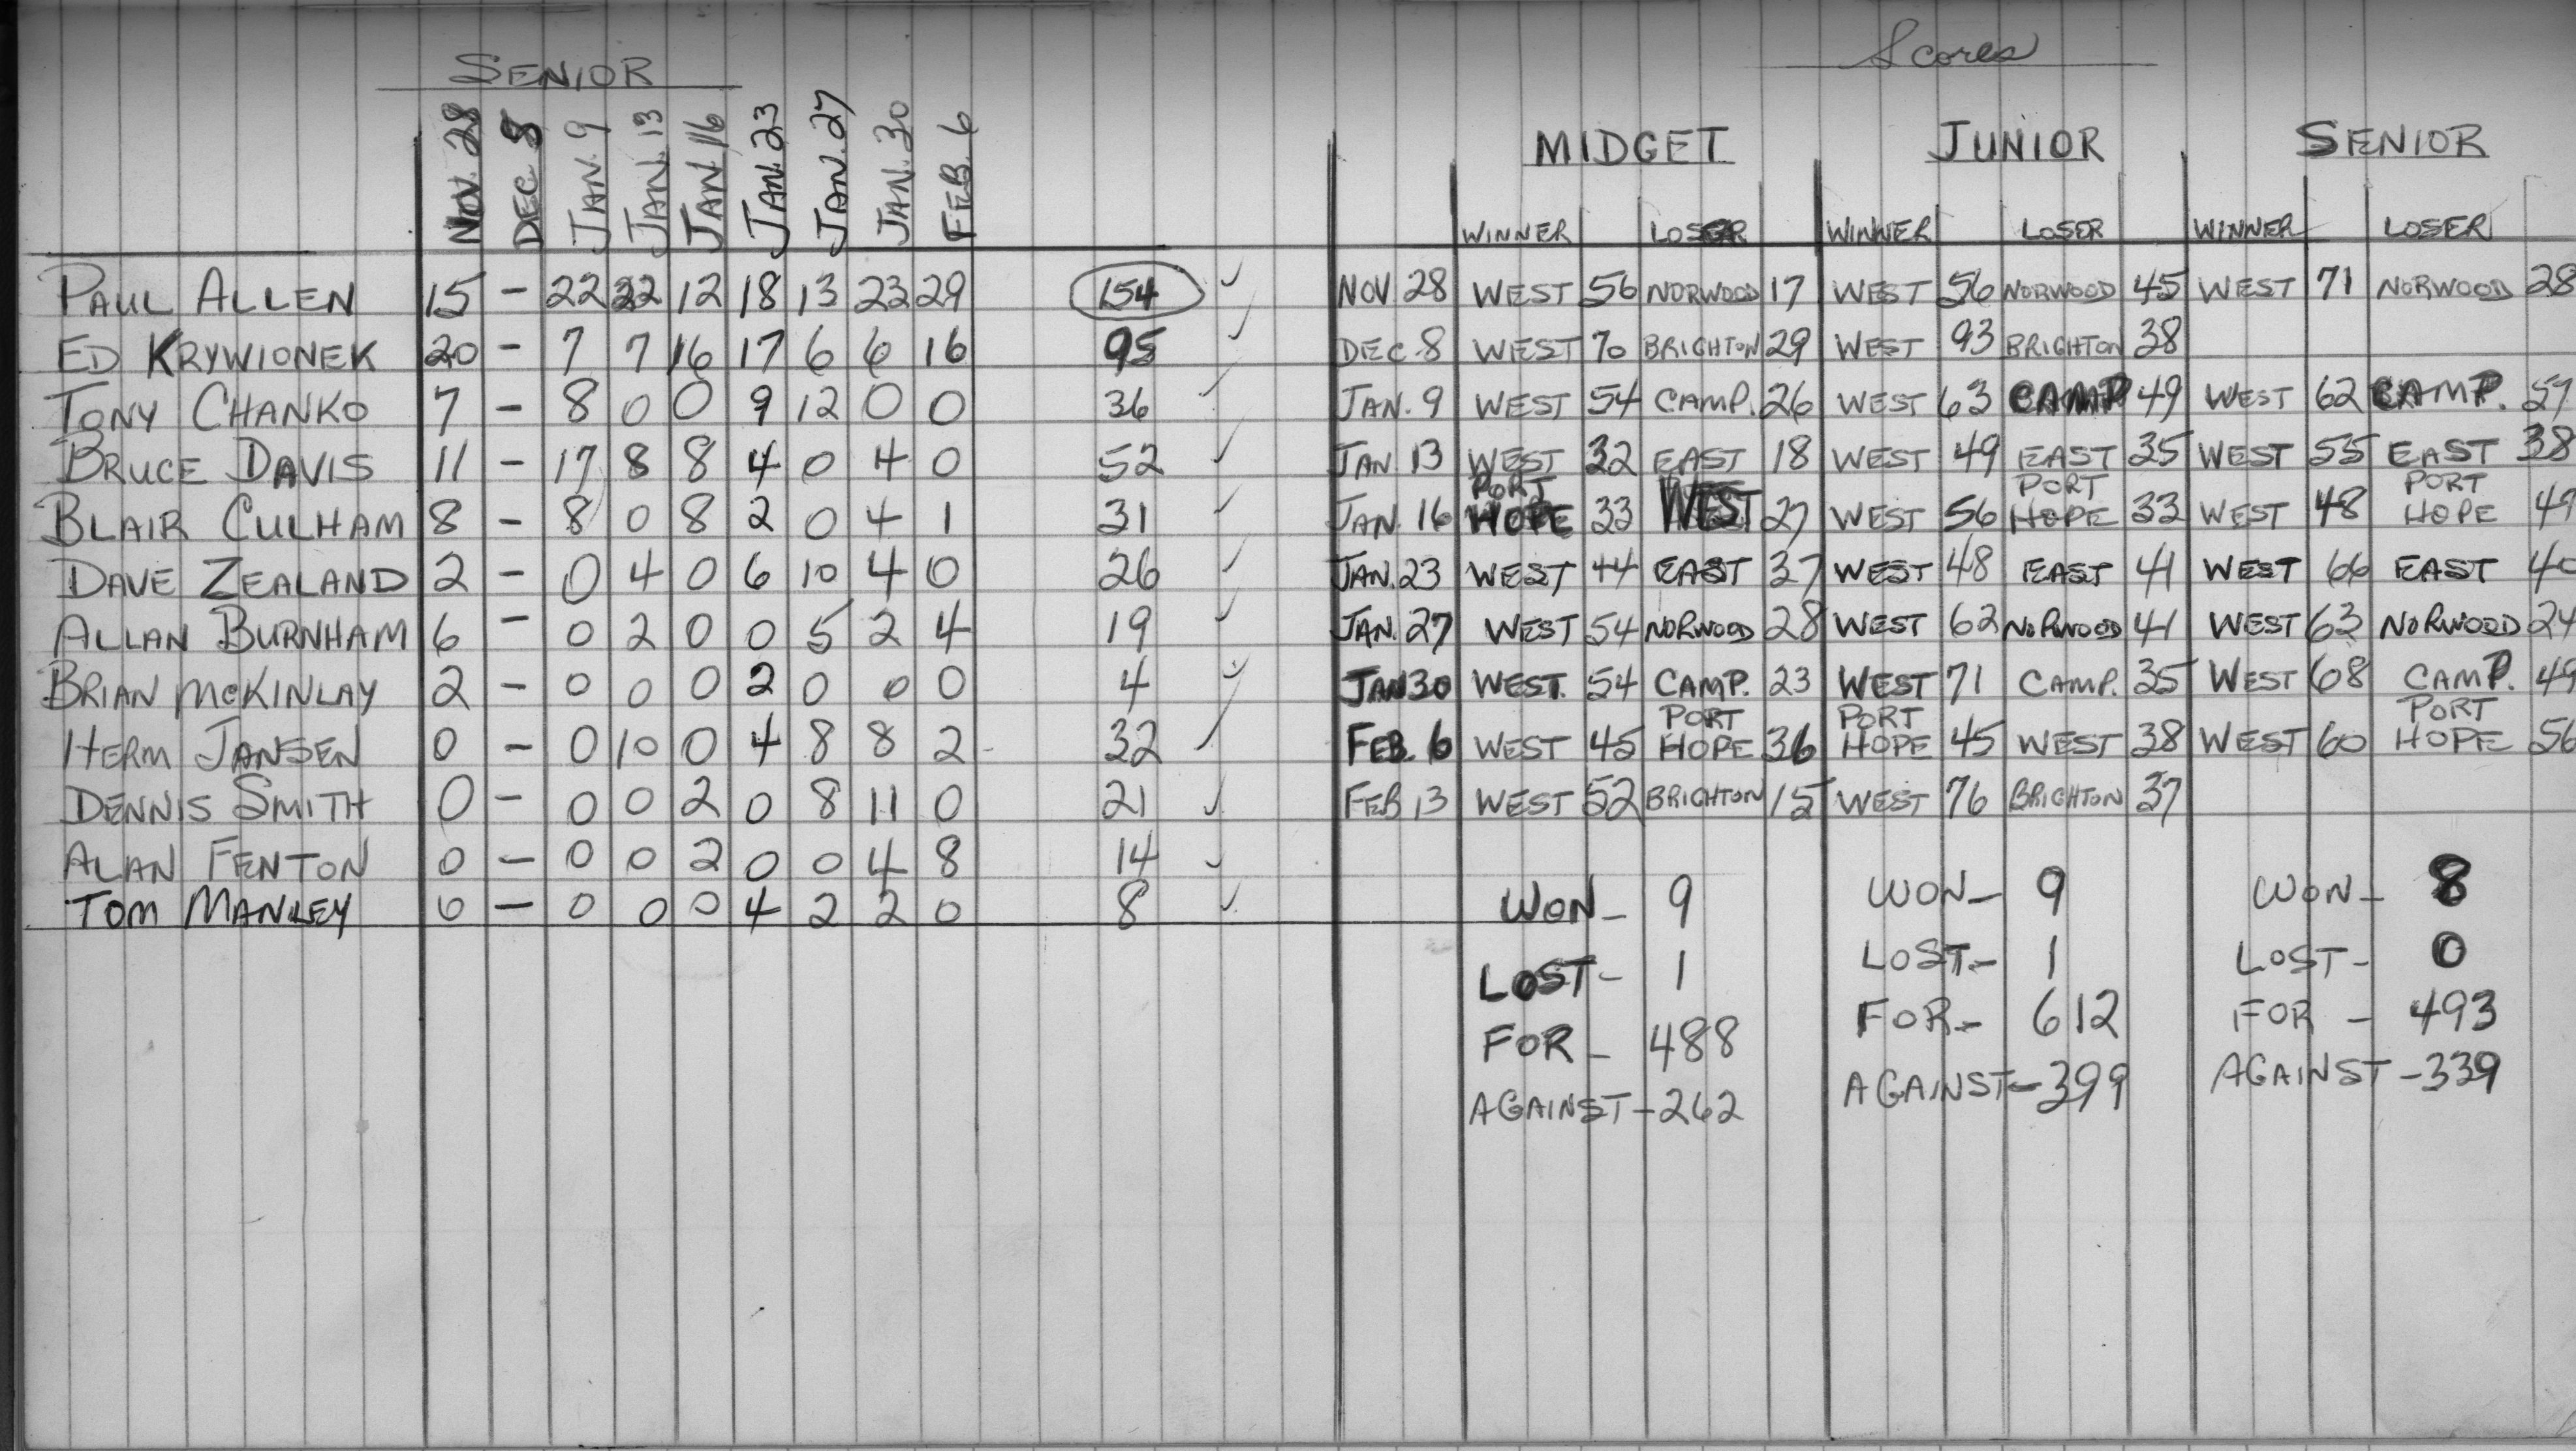 SENIOR
NOV. 28 DEC 8 JAN. 9 JAN. 13 JAN. 16 JAN. 23 JAN. 27 JAN. 30 FEB. 6
PAUL ALLEN 15 - 22 22 12 18 13 23 29 154 ✓
ED KRYWIONEK 20 - 7 7 16 17 6 6 16 95 ✓
TONY CHANKO 7 - 8 0 0 9 12 0 0 36 ✓
BRUCE DAVIS 11 - 17 8 8 4 0 4 0 52 ✓
BLAIR CULHAM 8 - 8 0 8 2 0 4 1 31 ✓
DAVE ZEALAND 2 - 0 4 0 6 10 4 0 26 ✓
ALLAN BURNHAM 6 - 0 2 0 0 5 2 4 19 ✓
BRIAN MCKINLAY 2 - 0 0 0 2 0 0 0 4 ✓
HERM JANSEN 0 - 0 10 0 4 8 8 2 32 ✓
DENNIS SMITH 0 - 0 0 2 0 8 11 0 21 ✓
ALAN FENTON 0 - 0 0 2 0 0 4 8 14 ✓
TOM MANLEY 0 - 0 0 0 4 2 2 0 8 ✓
Scores
MIDGET JUNIOR SENIOR
WINNER LOSER WINNER LOSER WINNER LOSER
NOV 28 WEST 56 NORWOOD 17 WEST 56 NORWOOD 45 WEST 71 NORWOOD 28
DEC. 8 WEST 70 BRIGHTON 29 WEST 93 BRIGHTON 38
JAN. 9 WEST 54 CAMP. 26 WEST 63 CAMP 49 WEST 62 CAMP. 57
JAN 13 WEST 32 EAST 18 WEST 49 EAST 35 WEST 55 EAST 38
JAN. 16 PORT HOPE 33 WEST 27 WEST 56 PORT HOPE 33 WEST 48 PORT HOPE 47
JAN. 23 WEST 44 EAST 37 WEST 48 EAST 41 WEST 66 EAST 40
JAN. 27 WEST 54 NORWOOD 28 WEST 62 NORWOOD 41 WEST 63 NORWOOD 24
JAN 30 WEST. 54 CAMP. 23 WEST 71 CAMP. 35 WEST 68 CAMP. 49
FEB. 6 WEST 45 PORT HOPE 36 PORT HOPE 45 WEST 38 WEST 60 PORT HOPE 56
FEB 13 WEST 52 BRIGHTON 15 WEST 76 BRIGHTON 37
WON - 9 WON - 9 WON - 8
LOST - 1 LOST - 1 LOST - 0
FOR - 488 FOR - 612 FOR - 493
AGAINST - 262 AGAINST - 399 AGAINST - 339